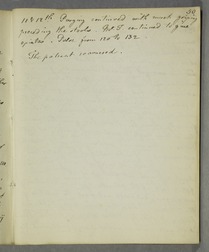 50
11 & 12th Purging continued with much griping
preceding the stools. continued to give
opiates. Pulse from 120 to 132.
The patient recovered.